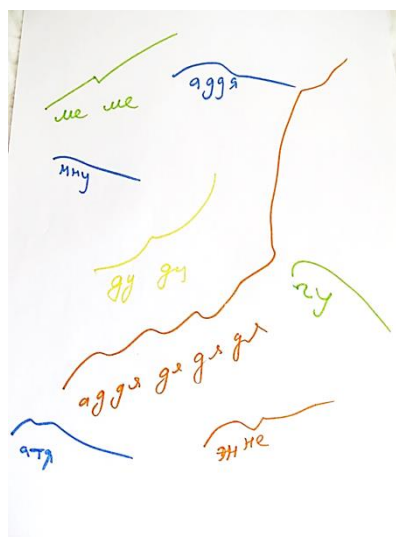 ме ме
аддя
мну
ду ду
гу
аддя дя дя дя
атя
эн не